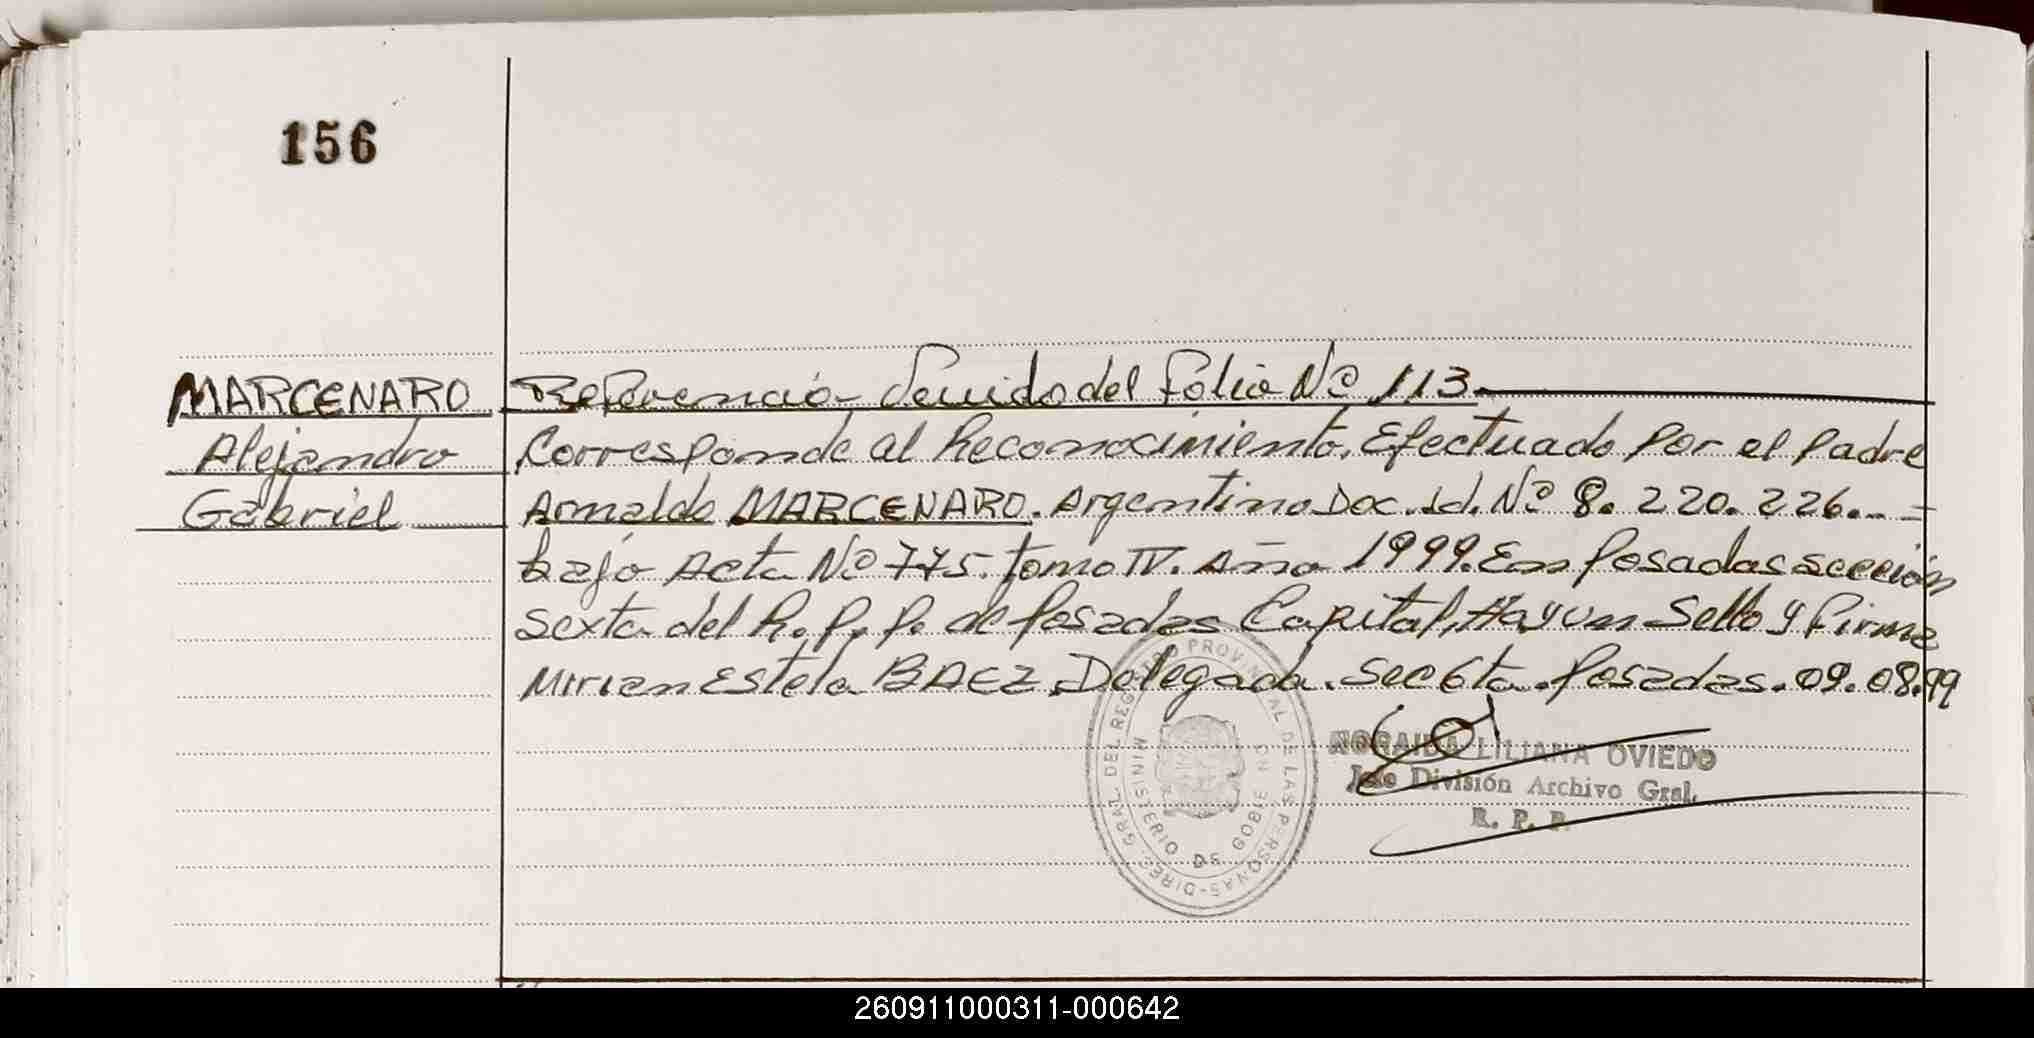 156
MARCENARO
Alejandro
Gabriel
Referencia - Venido del Folio Nº 113.
Corresponde al Reconocimiento. Efectuado Por el Padre
Arnaldo MARCENARO. Argentino Doc. Id. Nº 8. 220. 226. - =
bajo Acta Nº 775. Tomo IV. Año 1999. En Posadas sección
sexta del R. P. P. de Posadas Capital, Hay un Sello y Firma
Mirian Estela BAEZ. Delegada. Sec 6ta. Posadas. 09.08.99
DIREC. GRAL. DEL REGISTRO PROVINCIAL DE LAS PERSONAS-
MINISTERIO DE GOBIERNO
NORAIDA LILIANA OVIEDO
Jefe División Archivo Gral.
R. P. P.
260911000311-000642